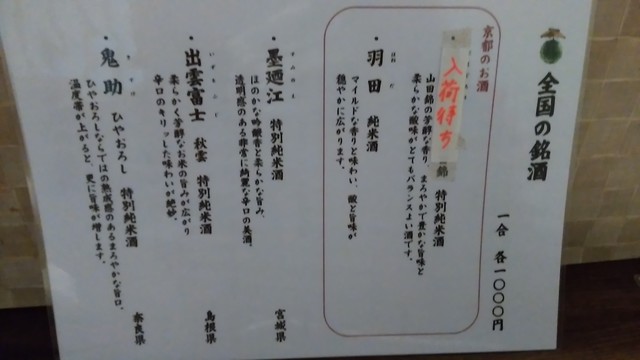 全国の銘酒
一合 各一〇〇〇円
京都のお酒
入荷待ち
錦 特別純米酒
山田錦の芳醇な香り、まろやかで豊かな旨味と
柔らかな酸味がとてもバランスよい酒です。
・羽田 純米酒
マイルドな香りと味わい、微な旨味が
穏やかに広がります。
・墨廼江 特別純米酒
すみのえ
ほのかな吟醸香と柔らかな旨み、
透明感のある非常に綺麗な辛口の美酒。
宮城県
・出雲富士 秋雲 特別純米酒
いずもふじ
柔らかく芳醇なお米の旨みが広がり
辛口のキリッした味わいが絶妙。
島根県
・鬼助 ひやおろし 特別純米酒
きすけ
ひやおろしならではの熟成感のあるまろやかな旨口。
温度帯が上がると、更に旨味が増します。
奈良県